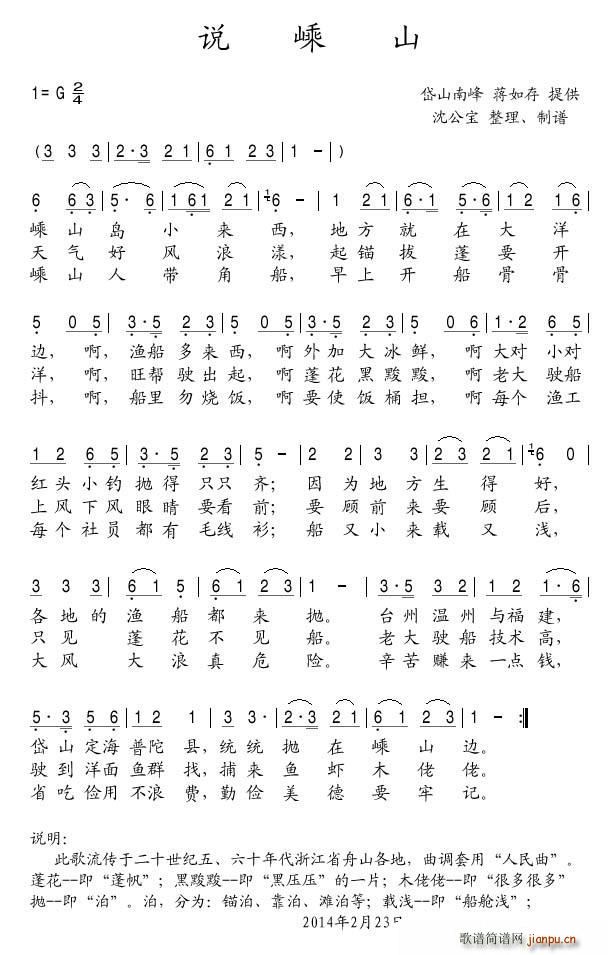 说 嵊 山
1= G 2/4
岱山南峰 蒋如存 提供
沈公宝 整理、制谱
( 3 3 3 | 2·3 2 1 | 6 1 2 3 | 1 - )
6 6 3 | 5· 6 | 1 61 2 1 | 1 6 - | 1 2 1 | 6·1 5·6 2 1 |
嵊 山 岛 小 来 西, 地 方 就 在 大 洋
天 气 好 风 浪 漾, 起 锚 拔 蓬 要 开
嵊 山 人 带 角 船, 早 上 开 船 骨 骨
5 0 5 | 3·5 2 3 | 5 0 5 | 3·5 2 3 | 5 0 6 | 1·2 6 5 |
边, 啊, 渔船 多 来 西, 啊 外 加 大 冰 鲜, 啊 大对 小对
洋, 啊, 旺帮 驶 出 起, 啊 蓬 花 黑 黢黢, 啊 老大 驶船
抖, 啊, 船里 勿 烧 饭, 啊 要 使 饭 桶 担, 啊 每个 渔工
1 2 6 5 | 3·5 2 3 | 5 - | 2 3 3 | 2 3 2 1 | 1 6 0 |
红 头 小 钓 抛 得 只 只 齐; 因 为 地 方 生 得 好,
上 风 下 风 眼 睛 要 看 前; 要 顾 前 来 要 顾 后,
每 个 社 员 都 有 毛 线 衫; 船 又 小 来 载 又 浅,
3 3 3 | 6 1 5 | 6 1 2 3 | 1 - | 3·5 3 2 | 1 2 1·6 |
各 地 的 渔 船 都 来 抛。 台 州 温 州 与 福 建,
只 见 蓬 花 不 见 船。 老 大 驶 船 技 术 高,
大 风 大 浪 真 危 险。 辛 苦 赚 来 一 点 钱,
5·3 5 5 | 1 2 1 | 3 3· | 2·3 2 1 | 6 1 2 3 | 1 - :||
岱 山 定 海 普 陀 县, 统 统 抛 在 嵊 山 边。
驶 到 洋 面 鱼 群 找, 捕 来 鱼 虾 木 佬 佬。
省 吃 俭 用 不 浪 费, 勤 俭 美 德 要 牢 记。
说明:
此歌流传于二十世纪五、六十年代浙江省舟山各地, 曲调套用“人民曲”。
蓬花--即“蓬帆”; 黑黢黢--即“黑压压”的一片; 木佬佬--即“很多很多”
抛--即“泊”。泊, 分为: 锚泊、靠泊、滩泊等; 载浅--即“船舱浅”;
2014年2月23日
歌谱简谱网
jianpu.cn